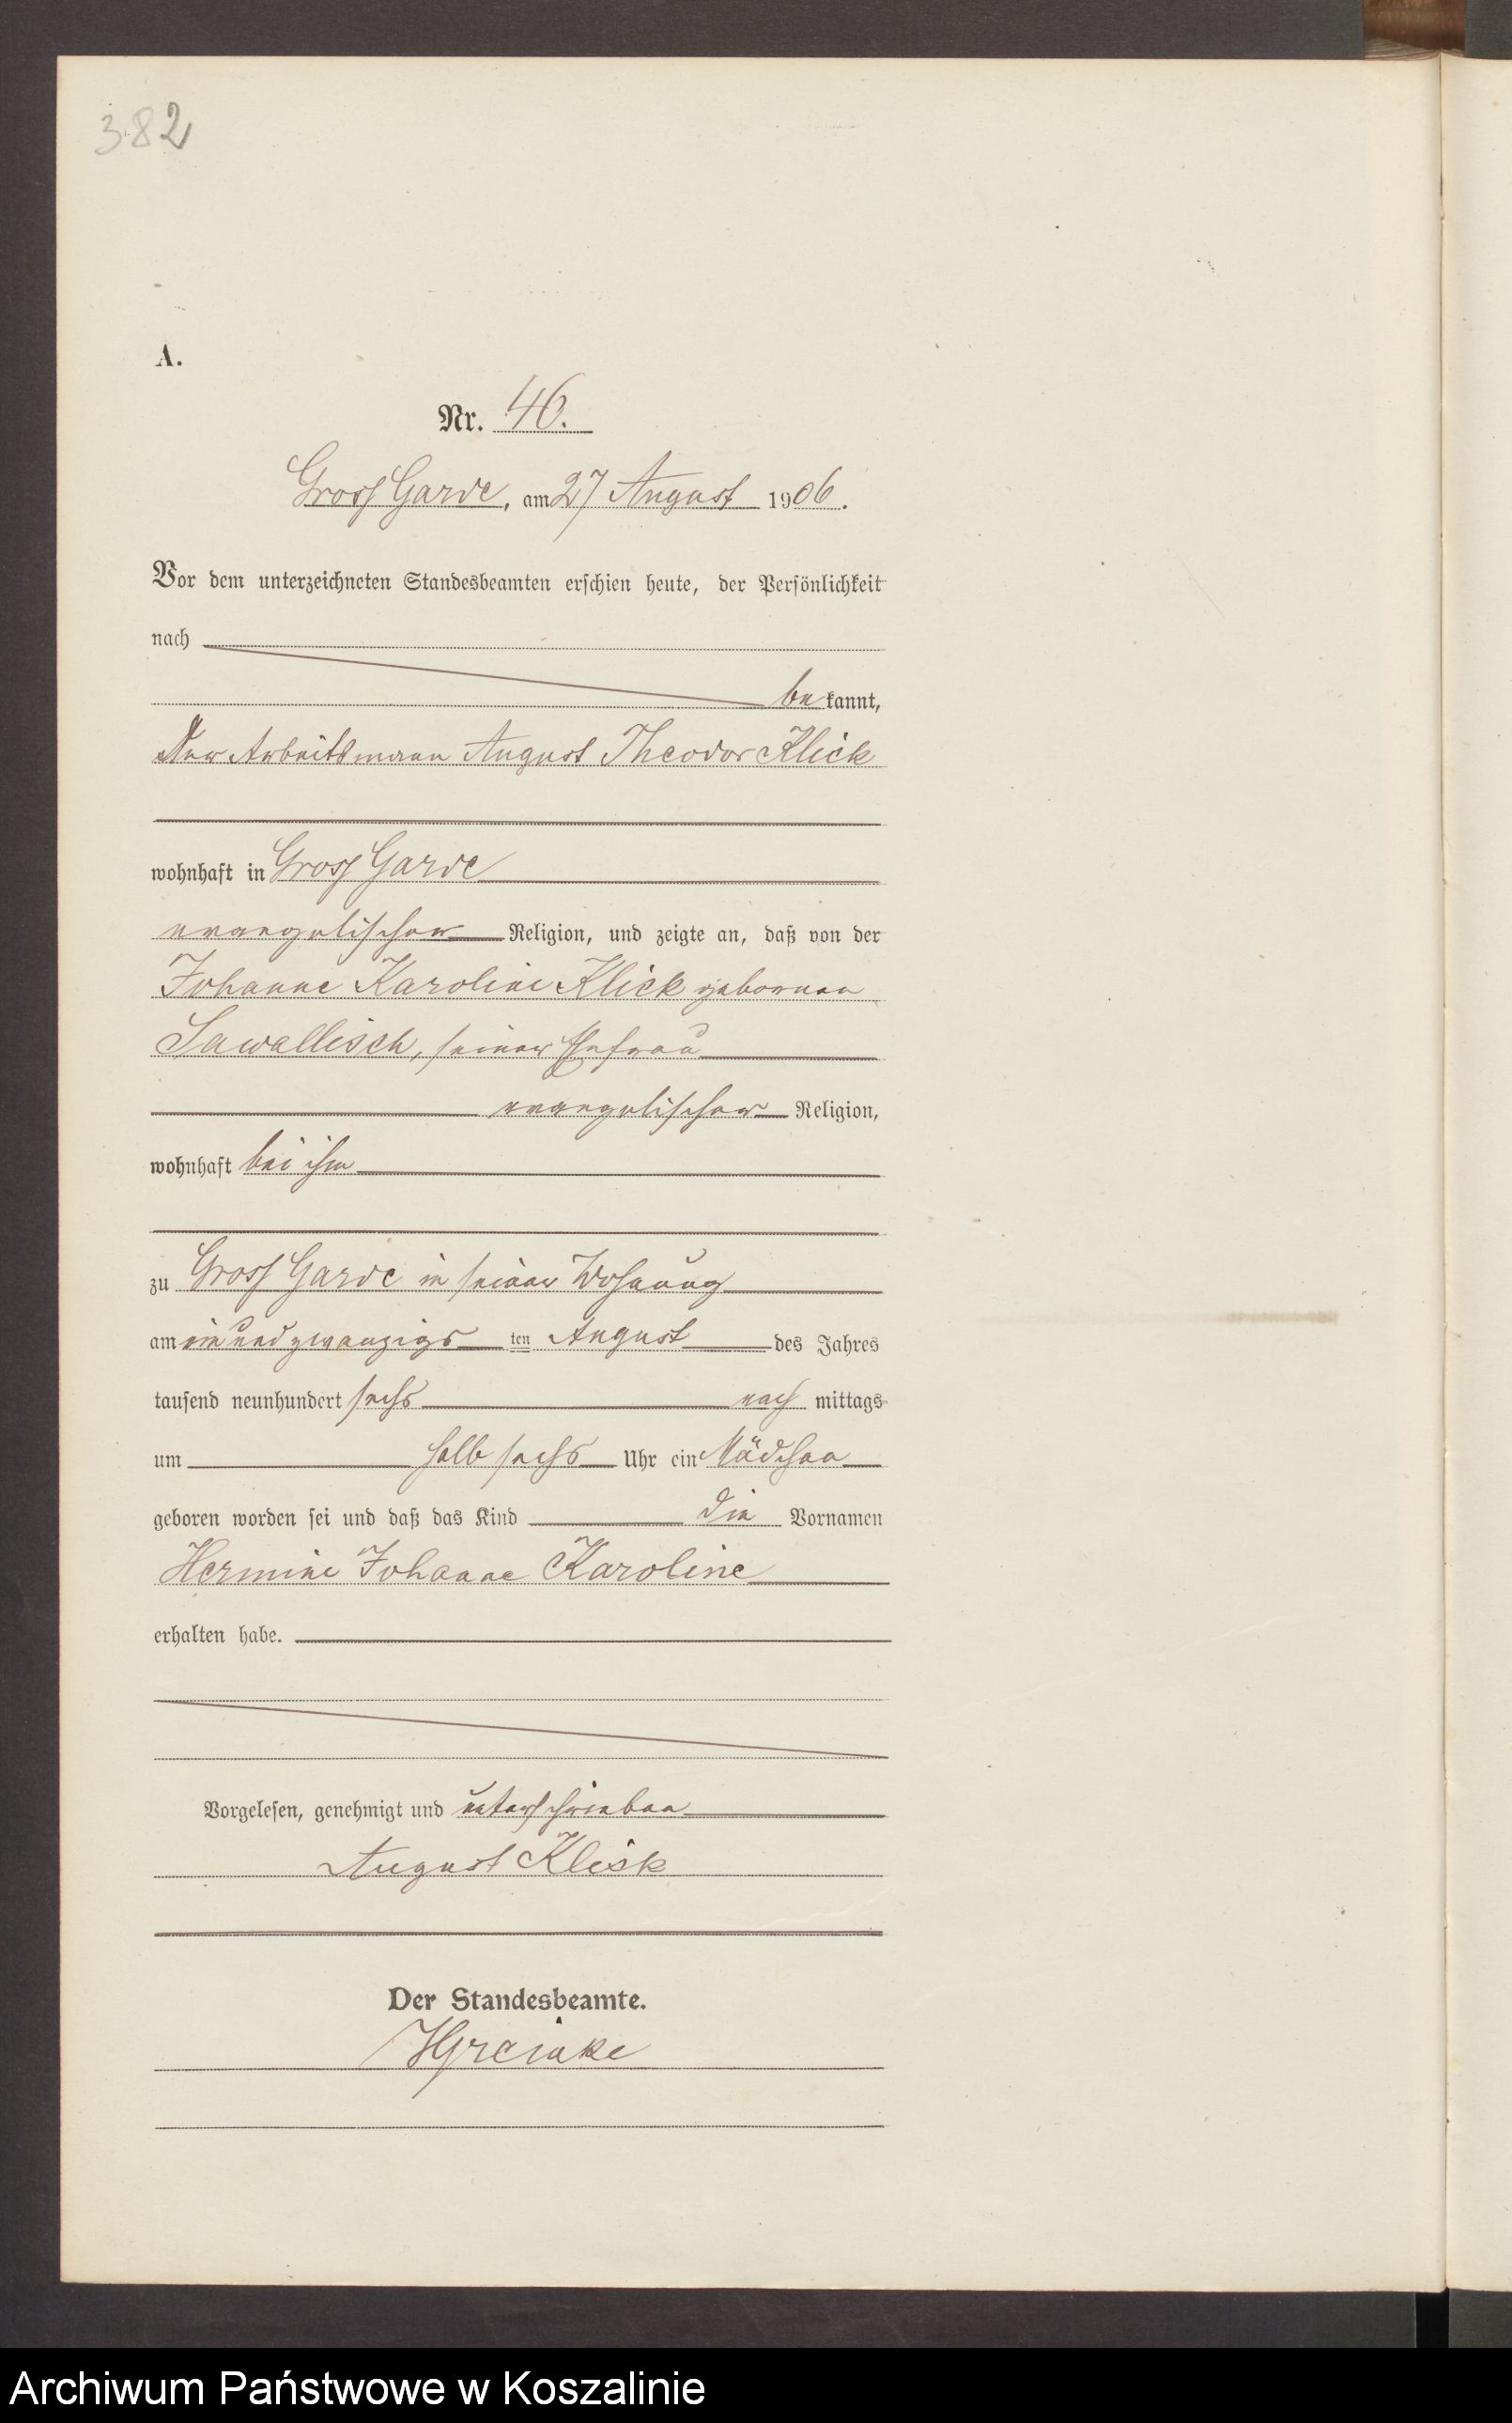 382
A.
Nr. 46.
Gross Garde, am 27 August 1906.
Vor dem unterzeichneten Standesbeamten erschien heute, der Persönlichkeit
nach
bekannt,
der Arbeitsmann August Theodor Klick
wohnhaft in Gross Garde
evangelischer Religion, und zeigte an, daß von der
Johanne Karoline Klick geborenen
Sawallisch, seiner Ehefrau
evangelischer Religion,
wohnhaft bei ihm
zu Gross Garde in seiner Wohnung
am einundzwanzigsten August des Jahres
tausend neunhundert sechs nachmittags
um halb sechs Uhr ein Mädchen
geboren worden sei und daß das Kind die Vornamen
Hermine Johanne Karoline
erhalten habe.
Vorgelesen, genehmigt und unterschrieben
August Klick
Der Standesbeamte.
Archiwum Państwowe w Koszalinie